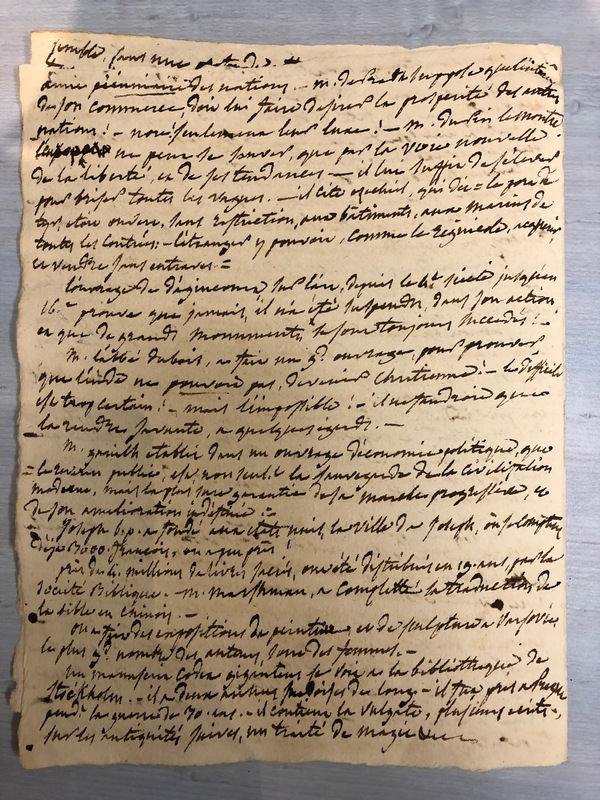 semble. sans une
pécuniaire des nations. - m. de Pradt suppose que l'intérêt
de son commerce, doit lui faire désirer la prospérité des autres
nations! - non seulement leur luxe! - m. Dupin le montre
ne peut se sauver, que par la voie nouvelle
de la liberté, et de ses tendances - il lui suffit de s'élever
pour briser toutes les vagues. - il cite qui dit = le port de
être ouvert, sans restriction, aux bâtiments, aux marins de
toutes les contrées. - l'étranger y pouvoit, comme le régnicole, acquérir
et vendre sans entraves =
l'ouvrage de d'agincourt sur l'art, depuis le 4e siècle jusqu'au
16e prouve que jamais, il n'a été suspendu, dans son action
et que de grands monuments, se sont toujours succédés! -
M. l'abbé dubois, a fait un gd. ouvrage, pour prouver
que l'inde ne pouvoit pas, devenir chrétienne! - le difficile
est trop certain! - mais l'impossible! - il ne faudroit que
la rendre savante, a quelques égards. -
M. ganilh établit dans un ouvrage d'économie politique, que
= le revenu public, est, non seult. la sauvegarde de la civilisation
moderne, mais la plus sure garantie de sa marche progressive, et
de son amélioration indéfinie =
Joseph b.p. a fondé aux états unis, la ville de Joseph, où se comptent
déjà françois, ou a peu près!
près de 4 millions de livres ont été distribués en 19 ans par la
société Biblique. - m. Marshman, a completté la traduction de
la bible en chinois. -
on a fait des expositions de peinture et de sculpture a Varsovie,
le plus gd. nombre des auteurs, sont des femmes. -
un manuscrit codex giganteus se voit a la bibliothèque de
Stockholm - il a deux de long - il fut pris a Prague
pendt. la guerre de 30 ans. - il contient la vulgate, plusieurs écrits,
sur les antiquités juives, un traité de magie